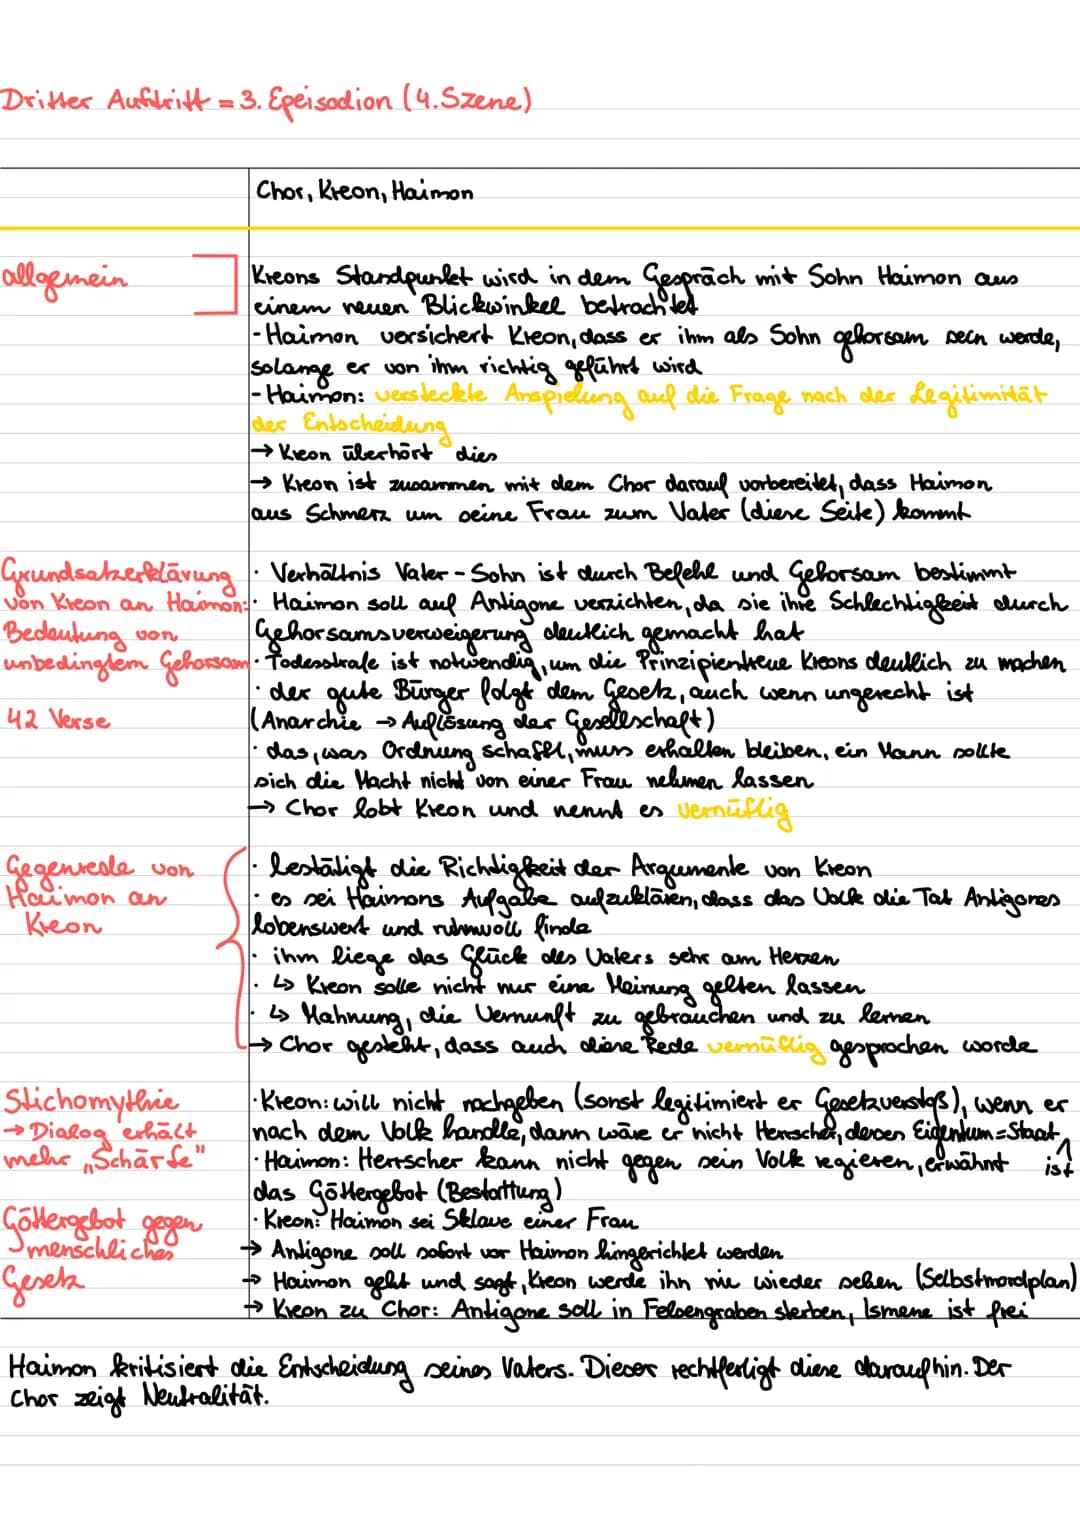 Dritter Auftritt = 3. Epeisodion (4. Szene)
Chor, Kreon, Haimon
allgemein
Kreons Standpunkt wird in dem Gespräch mit Sohn Haimon aus
einem neuen Blickwinkel betrachtet
- Haimon versichert Kreon, dass er ihm als Sohn gehorsam sein werde,
solange er von ihm richtig geführt wird
- Haimon: versteckte Anspielung auf die Frage nach der Legitimität
der Entscheidung
→ Kreon überhört dies
→ Kreon ist zusammen mit dem Chor darauf vorbereitet, dass Haimon
aus Schmerz um seine Frau zum Vater (diese Seite) kommt
Grundsatzerklärung
von Kreon an Haimon:
Bedeutung von
unbedingtem Gehorsam
42 Verse
· Verhältnis Vater - Sohn ist durch Befehl und Gehorsam bestimmt
· Haimon soll auf Antigone verzichten, da sie ihre Schlechtigkeit durch
Gehorsamsverweigerung deutlich gemacht hat
· Todesstrafe ist notwendig, um die Prinzipientreue Kreons deutlich zu machen
· der gute Bürger folgt dem Gesetz, auch wenn ungerecht ist
(Anarchie → Auflösung der Gesellschaft)
· das, was Ordnung schafft, muss erhalten bleiben, ein Mann sollte
sich die Macht nicht von einer Frau nehmen lassen
→ Chor lobt Kreon und nennt es vernüftig
Gegenrede von
Haimon an
Kreon
· bestätigt die Richtigkeit der Argumente von Kreon
· es sei Haimons Aufgabe aufzuklären, dass das Volk die Tat Antigones
lobenswert und ruhmvoll finde
· ihm liege das Glück des Vaters sehr am Herzen
· ↳ Kreon solle nicht nur eine Meinung gelten lassen
· ↳ Mahnung, die Vernunft zu gebrauchen und zu lernen
→ Chor gesteht, dass auch diese Rede vernüftig gesprochen worde
Stichomythie
→ Dialog erhält
mehr „Schärfe"
Göttergebot gegen
menschliches
Gesetz
· Kreon: will nicht nachgeben (sonst legitimiert er Gesetzverstoß), wenn er
nach dem Volk handle, dann wäre er nicht Herrscher, dessen Eigentum = Staat
· Haimon: Herrscher kann nicht gegen sein Volk regieren, erwähnt ist
das Göttergebot (Bestattung)
· Kreon: Haimon sei Sklave einer Frau
→ Antigone soll sofort vor Haimon hingerichtet werden
→ Haimon geht und sagt, Kreon werde ihn nie wieder sehen (Selbstmordplan)
→ Kreon zu Chor: Antigone soll in Felsengraben sterben, Ismene ist frei
Haimon kritisiert die Entscheidung seines Vaters. Dieser rechtfertigt diese daraufhin. Der
Chor zeigt Neutralität.